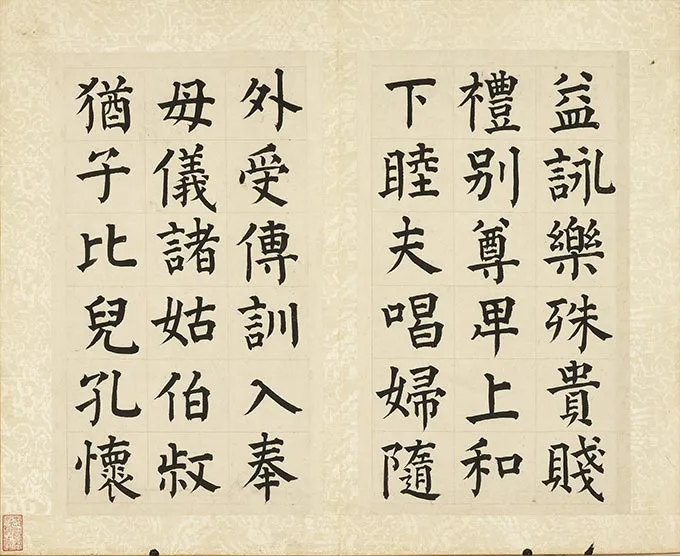 益詠樂殊貴賤
禮别尊卑上和
下睦夫唱婦隨
外受傅訓入奉
母儀諸姑伯叔
猶子比兒孔懷